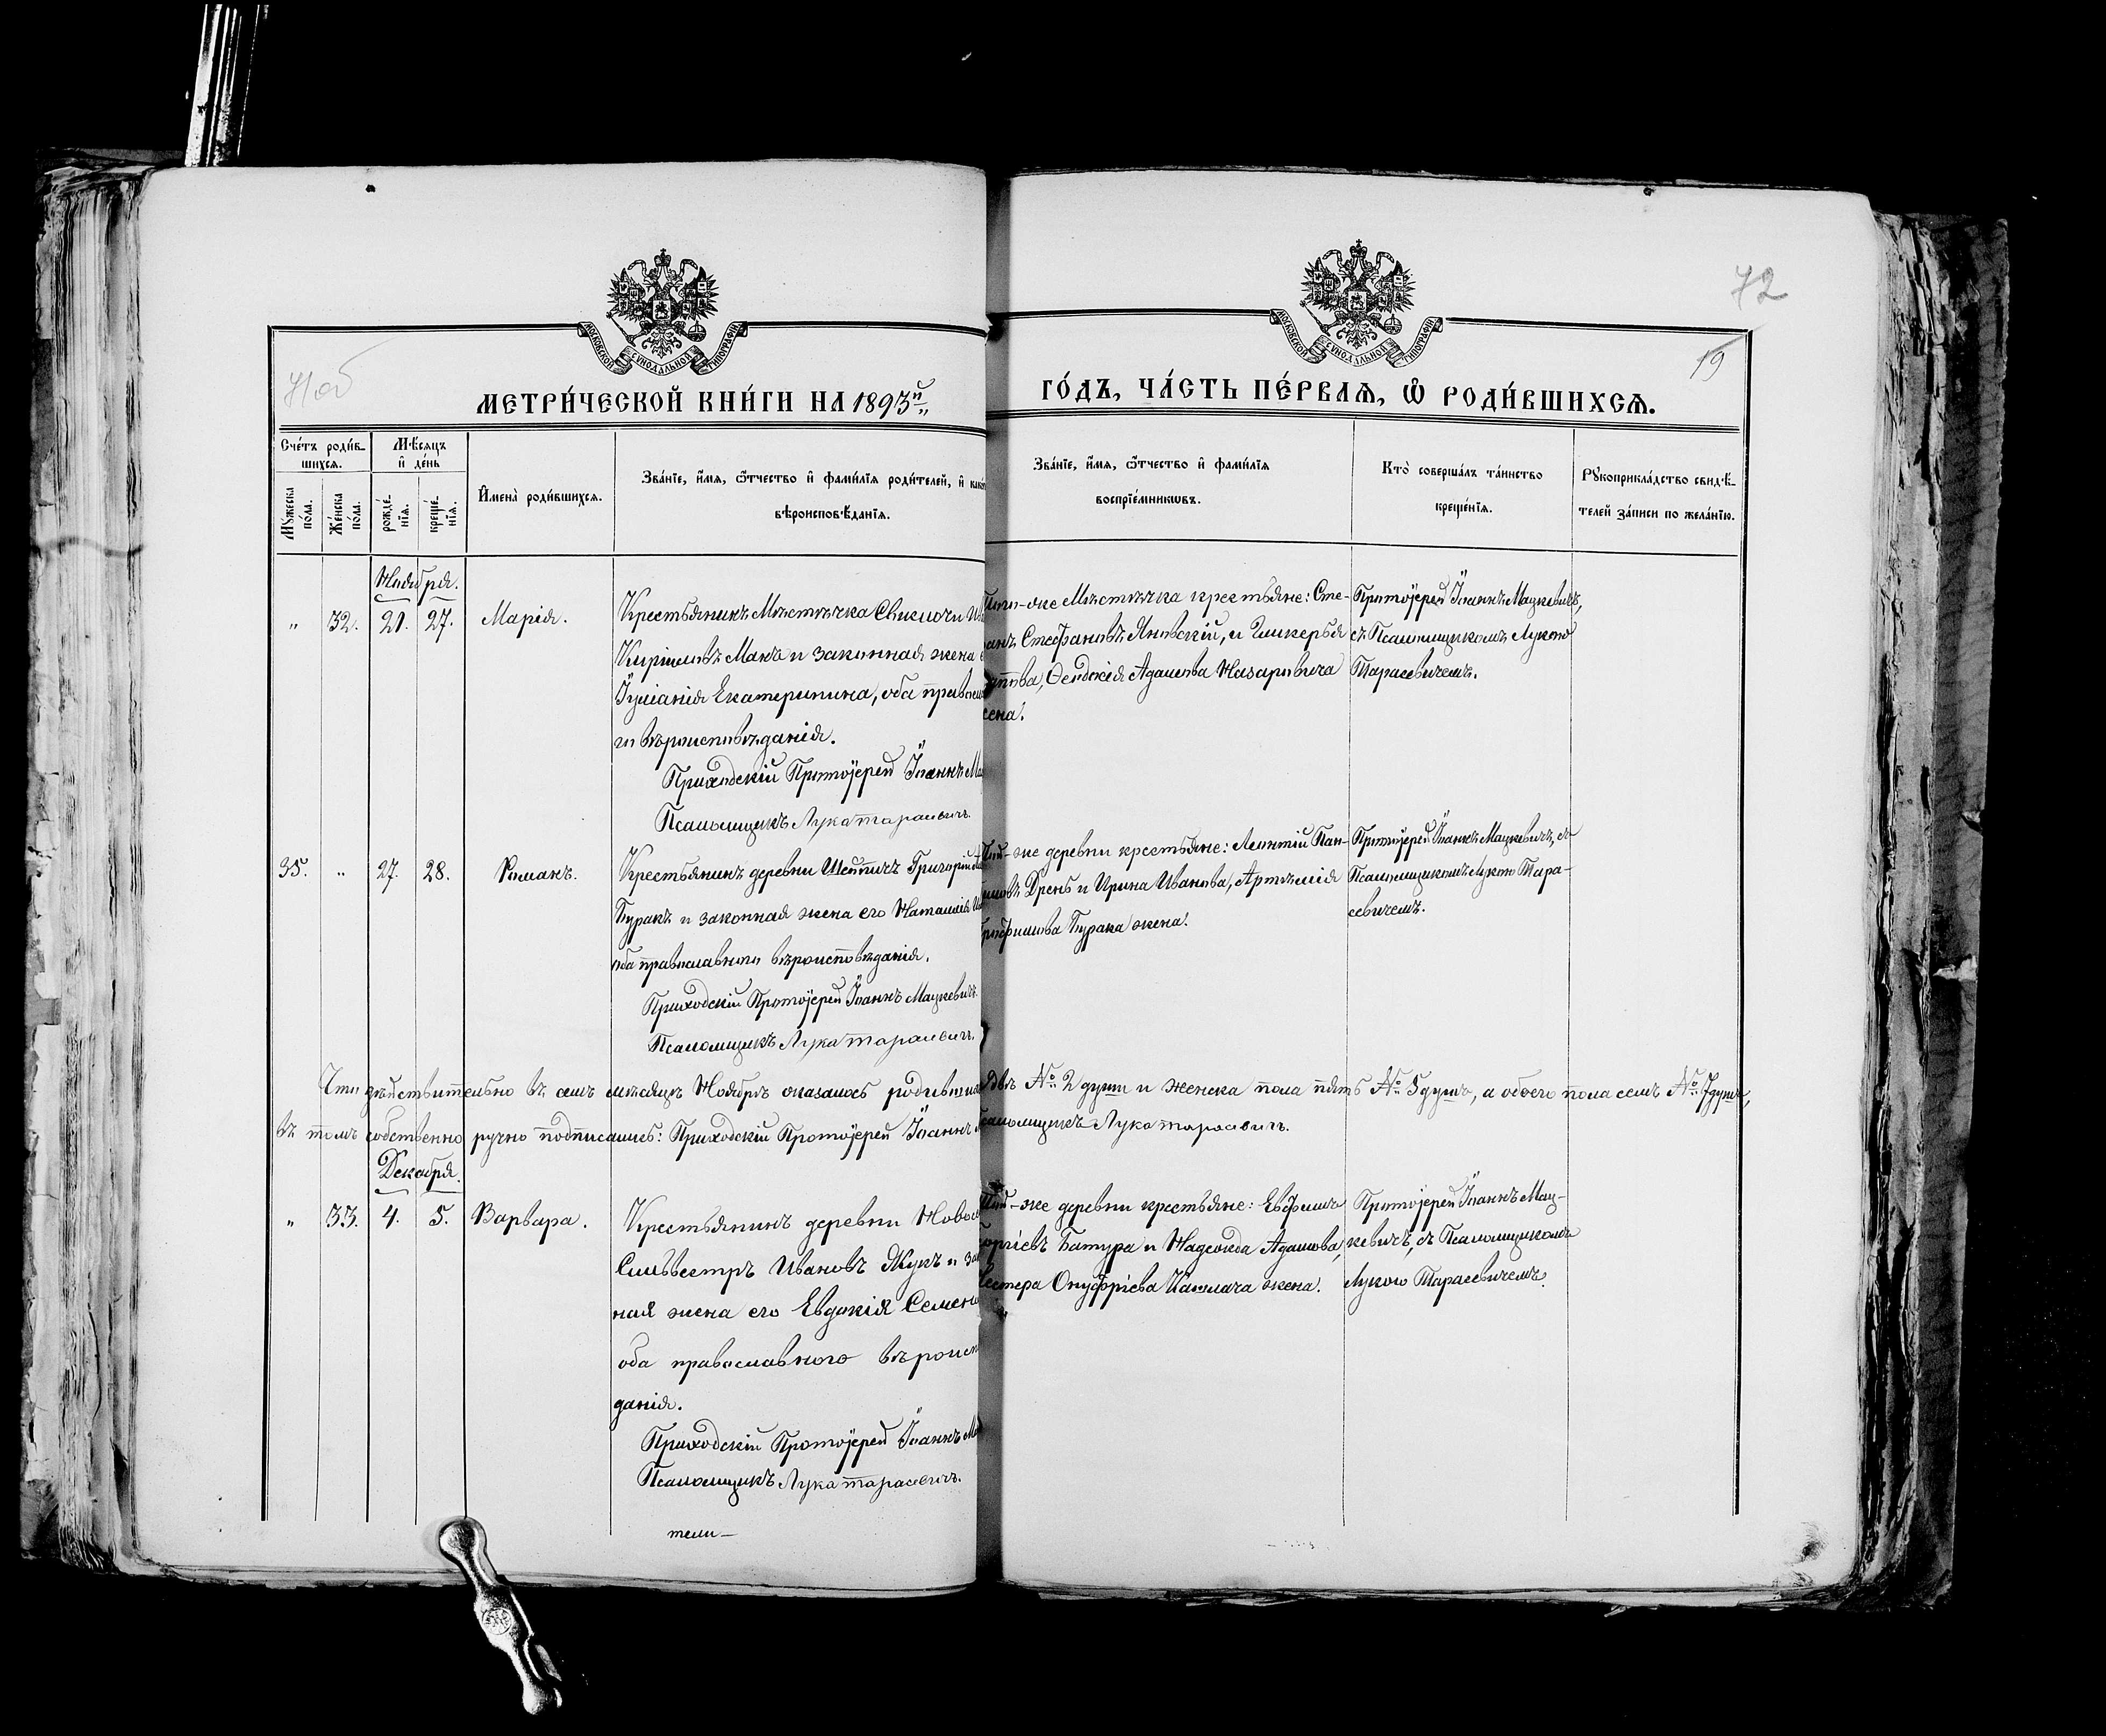 МОСКОВСКОЙ СѴНОДАЛЬНОЙ ТИПОГРАФІИ
МОСКОВСКОЙ СѴНОДАЛЬНОЙ ТИПОГРАФІИ
72
71 об
19
МЕТРИ́ЧЕСКОЙ КНИ́ГИ НА 1893й
ГО́ДЪ, ЧА́СТЬ ПЕ́РВАѦ, Ѡ РОДИ́ВШИХСѦ.
Сче́тъ роди́в-
шихсѧ.
Мѣ́сяцъ
и҆ де́нь
Мꙋ́жеска по́ла.
Же́нска по́ла.
рожде́-
нїѧ.
креще́-
нїѧ.
И҆мена̀ роди́вшихсѧ.
Зва́нїе, и҆́мѧ, ѻ҆́тчество и҆ фамѝлїѧ роди́телей, и҆
вѣроисповѣ́данїѧ.
Зва́нїе, и҆́мѧ, ѻ҆́тчество и҆ фамѝлїѧ
воспрїе́мникѡвъ.
Кто̀ соверша́лъ та́инство
креще́нїѧ.
Рꙋкоприкла́дство свидѣ́-
телей за́писи по жела́нїю.
Ноября.
" 32. 21. 27. Марія.
Крестьянинъ Мѣстечка Свислочи
Макъ и законная жена
Іуліанія Екатеринина, оба православна
го вѣроисповѣданія.
Приходскій Протоіерей Іоаннъ
Псаломщикъ Лука Тарасевичъ.
-же Мѣстечка крестьяне: Сте-
Стефановъ Яновскій, и Гликерія
Ѳеодосія Адамова Назаровича
жена.
Протоіерей Іоаннъ Мацкевичъ,
съ Псаломщикомъ Лукою
Тарасевичемъ.
35. " 27. 28. Романъ.
Крестьянинъ деревни Григорій
Буракъ и законная жена его Наталія
оба православнаго вѣроисповѣданія.
Приходскій Протоіерей Іоаннъ Мацкевичъ.
Псаломщикъ Лука Тарасевичъ.
Той-же деревни крестьяне: Леонтій Пан-
Дрень и Ирина Иванова, Артемія
Бурака жена.
Протоіерей Іоаннъ Мацкевичъ, съ
Псаломщикомъ Лукою Тара-
севичемъ.
Что дѣйствительно въ семъ мѣсяцѣ Ноябрѣ оказалось родившихся двѣ № 2 души и женска пола пять № 5 душъ, а обоего пола семь № 7 душъ,
въ томъ собственно ручно подписались: Приходскій Протоіерей Іоаннъ Псаломщикъ Лука Тарасевичъ.
Декабря.
" 33. 4. 5. Варвара.
Крестьянинъ деревни
Сильвестръ Ивановъ Жукъ и
ная жена его Евдокія
оба православнаго вѣроиспо
данія.
Приходскій Протоіерей Іоаннъ
Псаломщикъ Лука Тарасевичъ.
Той-же деревни крестьяне: Евфимъ
Батура и Надежда Адамова,
Онуфріева жена.
Протоіерей Іоаннъ Мац-
кевичъ, съ Псаломщикомъ
Лукою Тарасевичемъ.
тели-